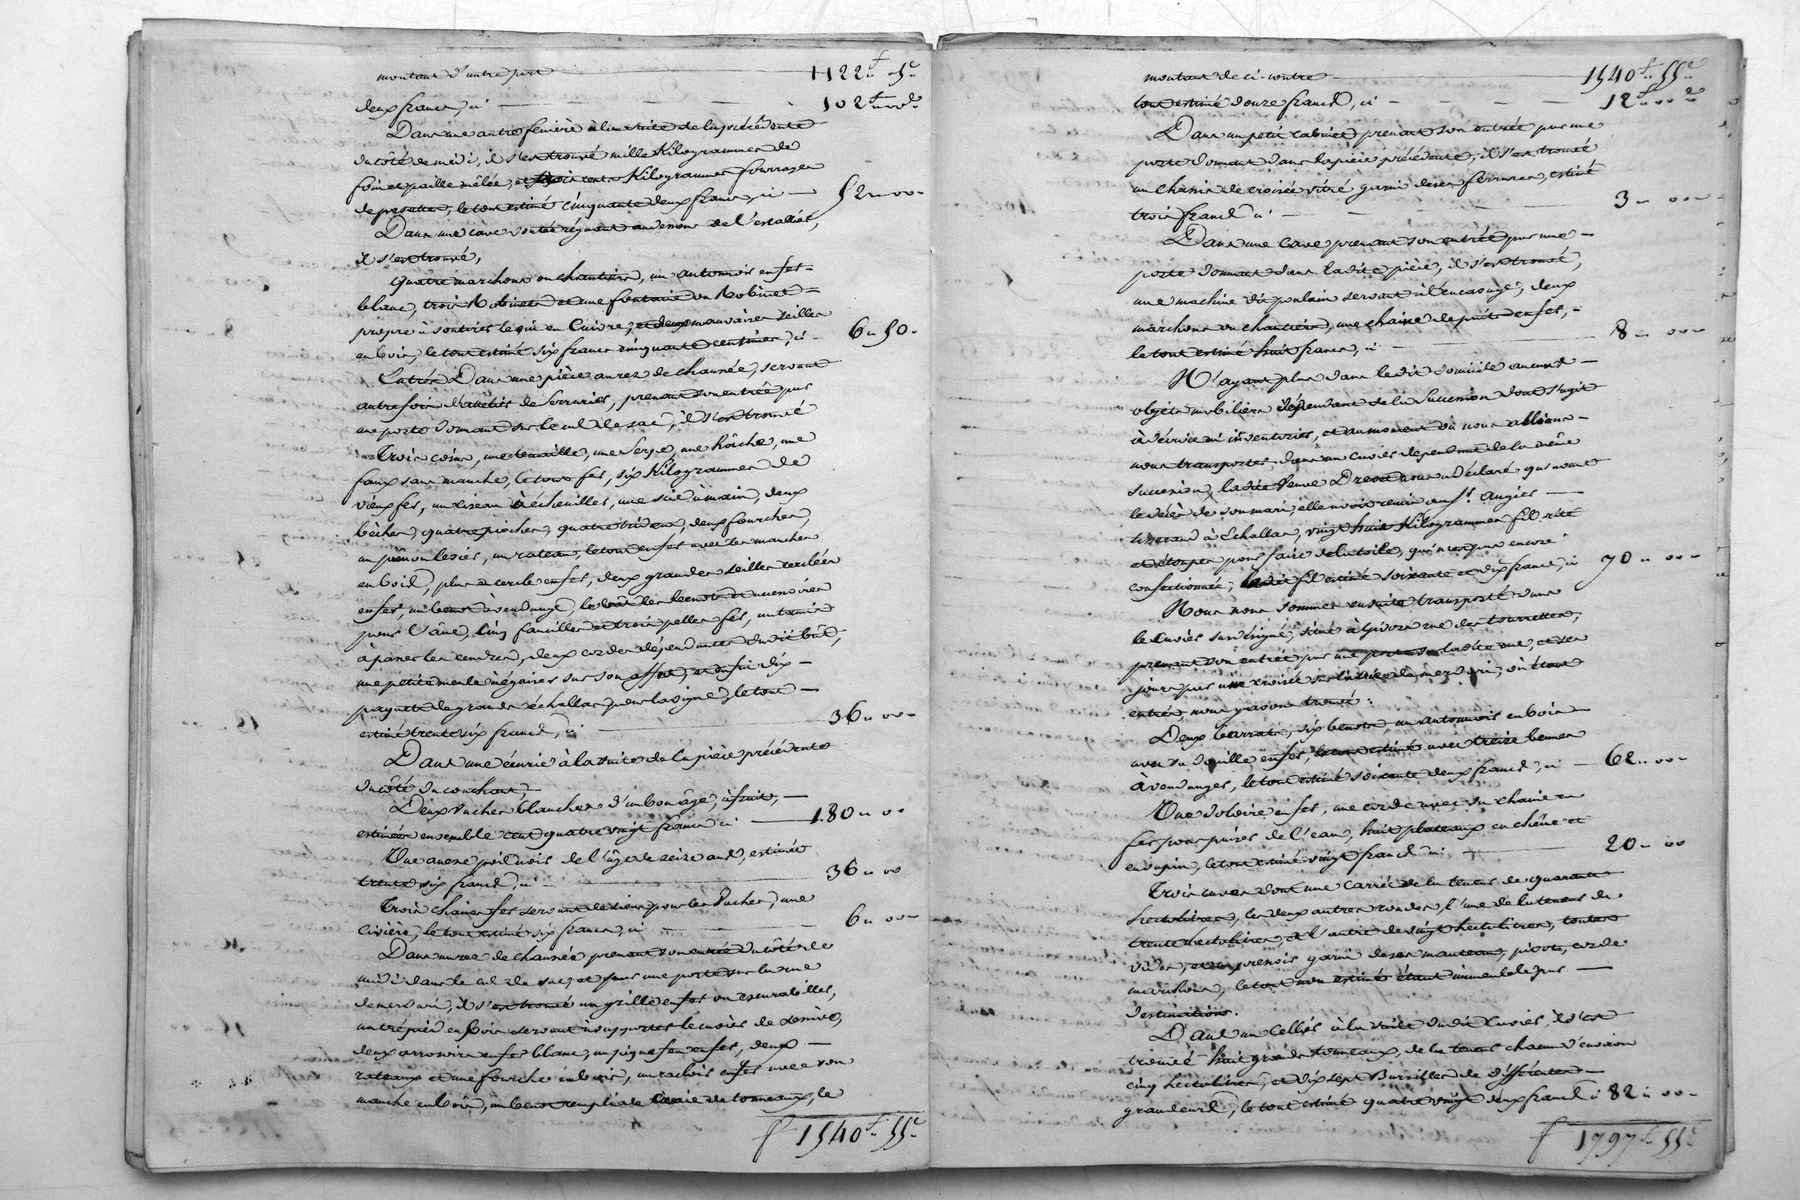 montant d'autre part 1122 f 5 c
deux francs, ci 102 f 00 c
Dans une autre fenière à la suite de la précédente
du côté de midi, il s'est trouvé mille Kilogrammes de
foin et paille mêlée, et trois cents Kilogrammes fourrages
de, le tout estimé cinquante deux francs, ci 52 00
Dans une cave voutée régnant au dessous de l'escallier,
il s'est trouvé,
Quatre marchons ou chantiers, un antonnoir en fer
blanc, trois Robinets et une fontaine ou Robinet
propre à soutirer le vin en Cuivre, et deux mauvaises seilles
en bois, le tout estimé six francs cinquante centimes, ci 6 50
Dans une pièce au rez de chaussée, servant
autrefois d'attelier de Serrurier, prenant son entrée par
une porte donnant sur le cul de sac, il s'est trouvé
Trois coins, une tenaille, une Serpe, une hâche, une
faulx sans manche, le tout fer, six Kilogrammes de
vieux fer, un ciseau à écheniller, une scie à main, deux
bêches, quatre pioches, quatre tridens, deux fourches,
un levier, un rateau, le tout en fer avec les manches
en bois, plus cercle en fer, deux grandes seilles cerclées
en fer, un benot à vendange, le bât les
pour l'âne, cinq faucilles et trois pelles fer, un tamis
à passer les cendres, deux cordes dépendantes du dit bât,
une petite meule à éguiser sur son affut, et enfin dix
paquets de grands échallas pour la vigne, le tout
estimé trente six francs, ci 36 00
Dans une écurie à la suite de la pièce précédente
du côté du couchant,
Deux vaches blanches d'un bon âge, à fruit,
estimées ensemble cent quatre vingt francs ci 180 00
Une anesse poil noir de l'âge de seize ans, estimée
trente six francs, ci 36 00
Trois chaines fer servant de liens pour les Vaches, une
civière, le tout estimé six francs, ci 6 00
Dans un rez de chaussée prenant son entrée du côté de
midi dans le cul de sac, et par une porte sur la rue
de, il s'est trouvé un grille en fer ou,
un trépied en bois servant à supporter le cuvier de Lessive,
deux arrosoirs en fer blanc, un pique feu en fer, deux
rateaux et une fourche en bois, un rachoir en fer avec son
manche en bois, un benot rempli de craie de tonneaux, le
f 1540 f 55 c
montant de ci contre 1540 f 55 c
tout estimé douze francs, ci 12 f 00 c
Dans un petit cabinet prenant son entrée par une
porte donnant dans la pièce précédente, il s'est trouvé
un chassis de croisée vitré garni de ses ferrures, estimé
trois francs ci 3 00
Dans une cave prenant son entrée par une
porte donnant dans la dite pièce, il s'est trouvé,
une machine dit poulain servant à l'encavage, deux
marchons ou chantiers, une chaine de puits en fer,
le tout estimé huit francs, ci 8 00
N'ayant plus dans le dit domicile aucuns
objets mobiliers dépendant de la Succession dont s'agit
à décrire ni inventorier, et au moment où nous allions
nous transporter dans un cuvier dépendant de la même
succession, la dite Veuve Drevet nous a déclaré qu'avant
le décès de son mari, elle avoit remis au Sr. Augier
tisserand à Echallas, vingt huit Kilogrammes fil rité
et étoupes pour faire de la toile, qui n'est pas encore
confectionnée, le dit fil estimé soixante et dix francs, ci 70 00
Nous nous sommes ensuite transporté dans
le Cuvier sus désigné, situé à Givors rue des tourrettes,
prenant son entrée par une porte sur la dite rue, et ses
jours par une croisée sur la rue de, où étant
entrés, nous y avons trouvé :
Deux barrats, six benots, un antonnoir en bois
avec sa douille en fer, avec treize bennes
à vendanges, le tout estimé soixante deux francs, ci 62 00
Une doloire en fer, une corde avec sa chaine en
fer pour puiser de l'eau, huit plateaux en chêne et
en sapin, le tout estimé vingt francs ci 20 00
Trois cuves dont une carrée de la tenue de quarante
hectolitres, les deux autres rondes, l'une de la tenue de
trente hectolitres, et l'autre de vingt hectolitres, toutes
vides, et un pressoir garni de ses manteaux, pivot, corde
marchons, le tout non estimé étant immeuble par
destination.
Dans un Cellier à la suite du dit Cuvier, il s'est
trouvé huit grands tonneaux, de la tenue chacun d'environ
cinq hectolitres, et dix sept Barrilles de différentes
grandeurs, le tout estimé quatre vingt deux francs ci 82 00
f 1797 f 55 c